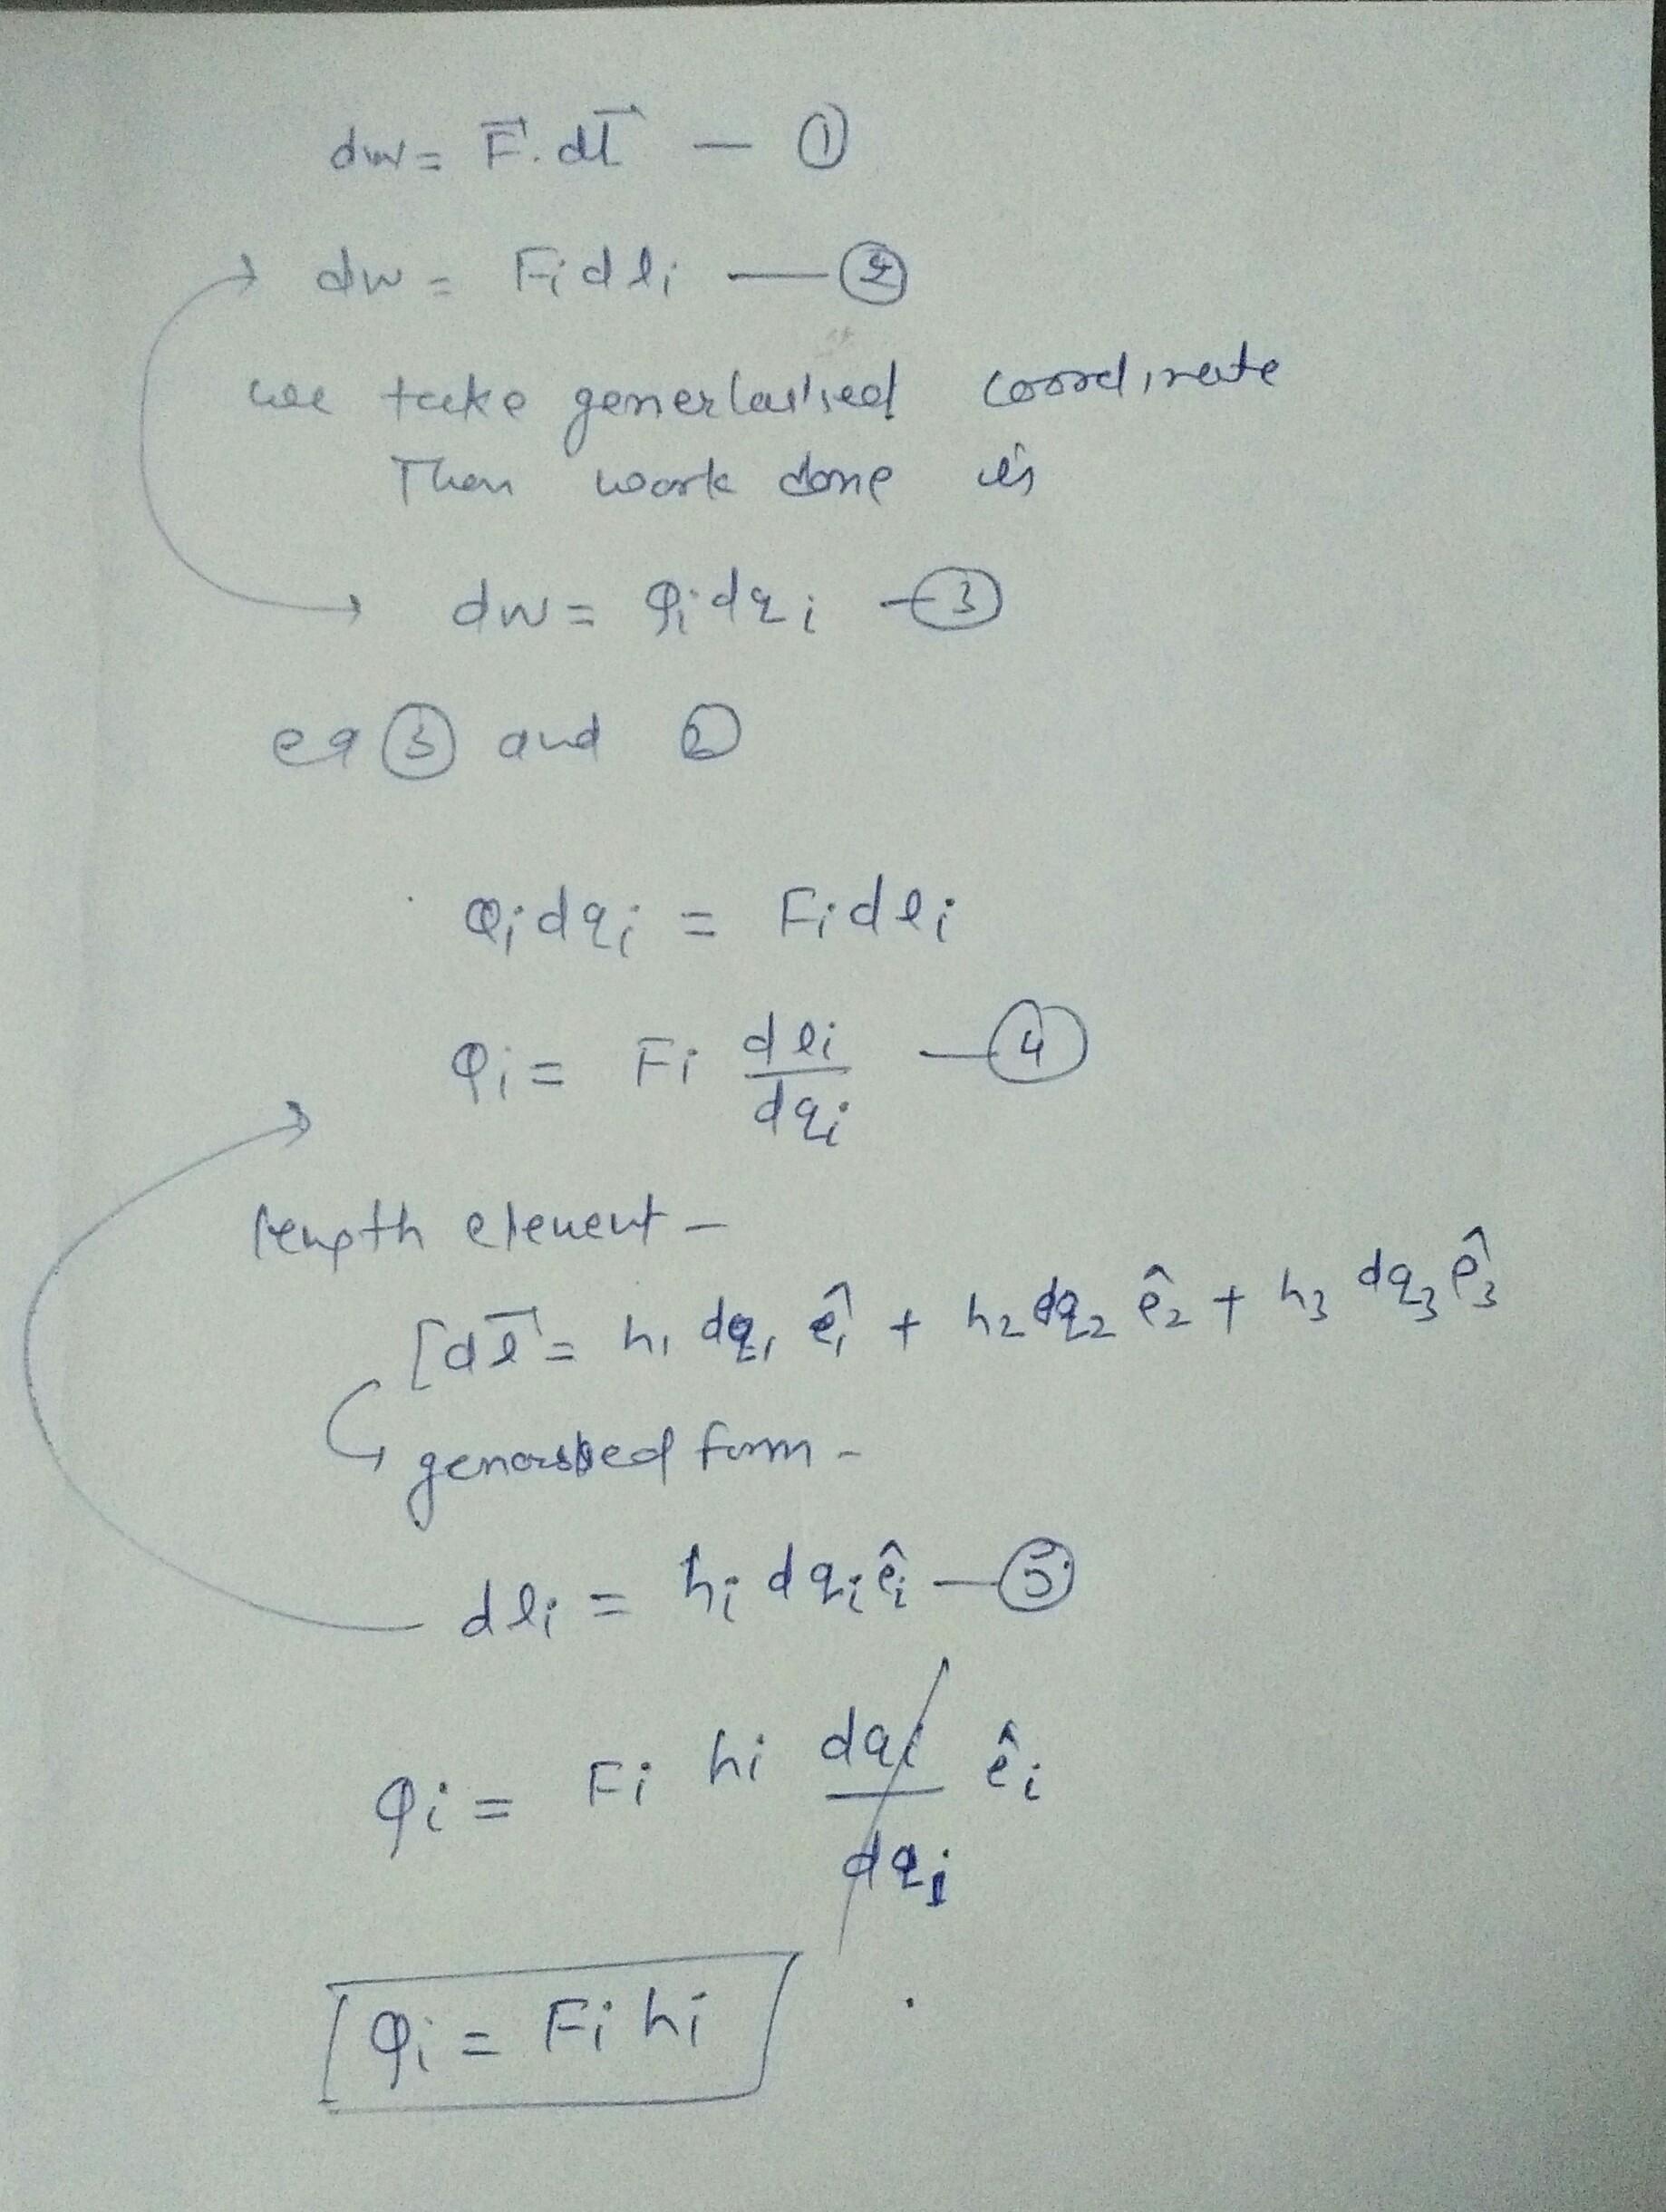 dw = F⃗. dl⃗ — ①
dw = Fi dli — ②
we take generlaised coordinate
Then work done is
dw = Qi dqi — ③
eq ③ and ②
Qi dqi = Fi dli
Qi = Fi dli/dqi — ④
length element —
[dl⃗ = h1 dq1 ê1 + h2 dq2 ê2 + h3 dq3 ê3
form -
dli = hi dqi êi — ⑤
Qi = Fi hi dqi/dqi êi
Qi = Fi hi